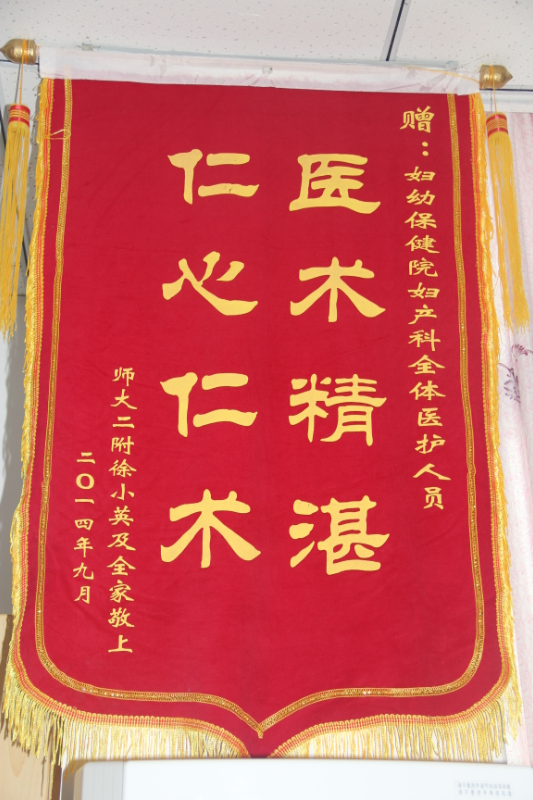 赠：妇幼保健院妇产科全体医护人员
医术精湛
仁心仁术
师大二附徐小英及全家敬上
二〇一四年九月